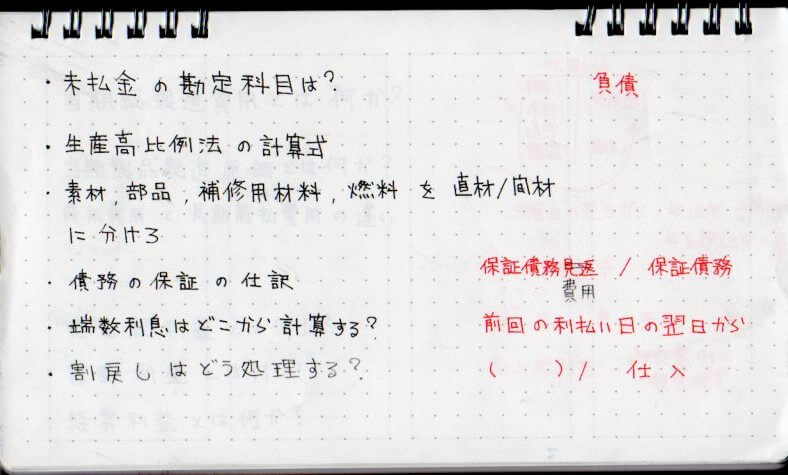 ・未払金の勘定科目は? 負債
・生産高比例法の計算式
・素材,部品,補修用材料,燃料を直材/間材
に分けろ
・債務の保証の仕訳 保証債務見返 / 保証債務
費用
・端数利息はどこから計算する? 前回の利払い日の翌日から
・割戻しはどう処理する? ( ) / 仕入